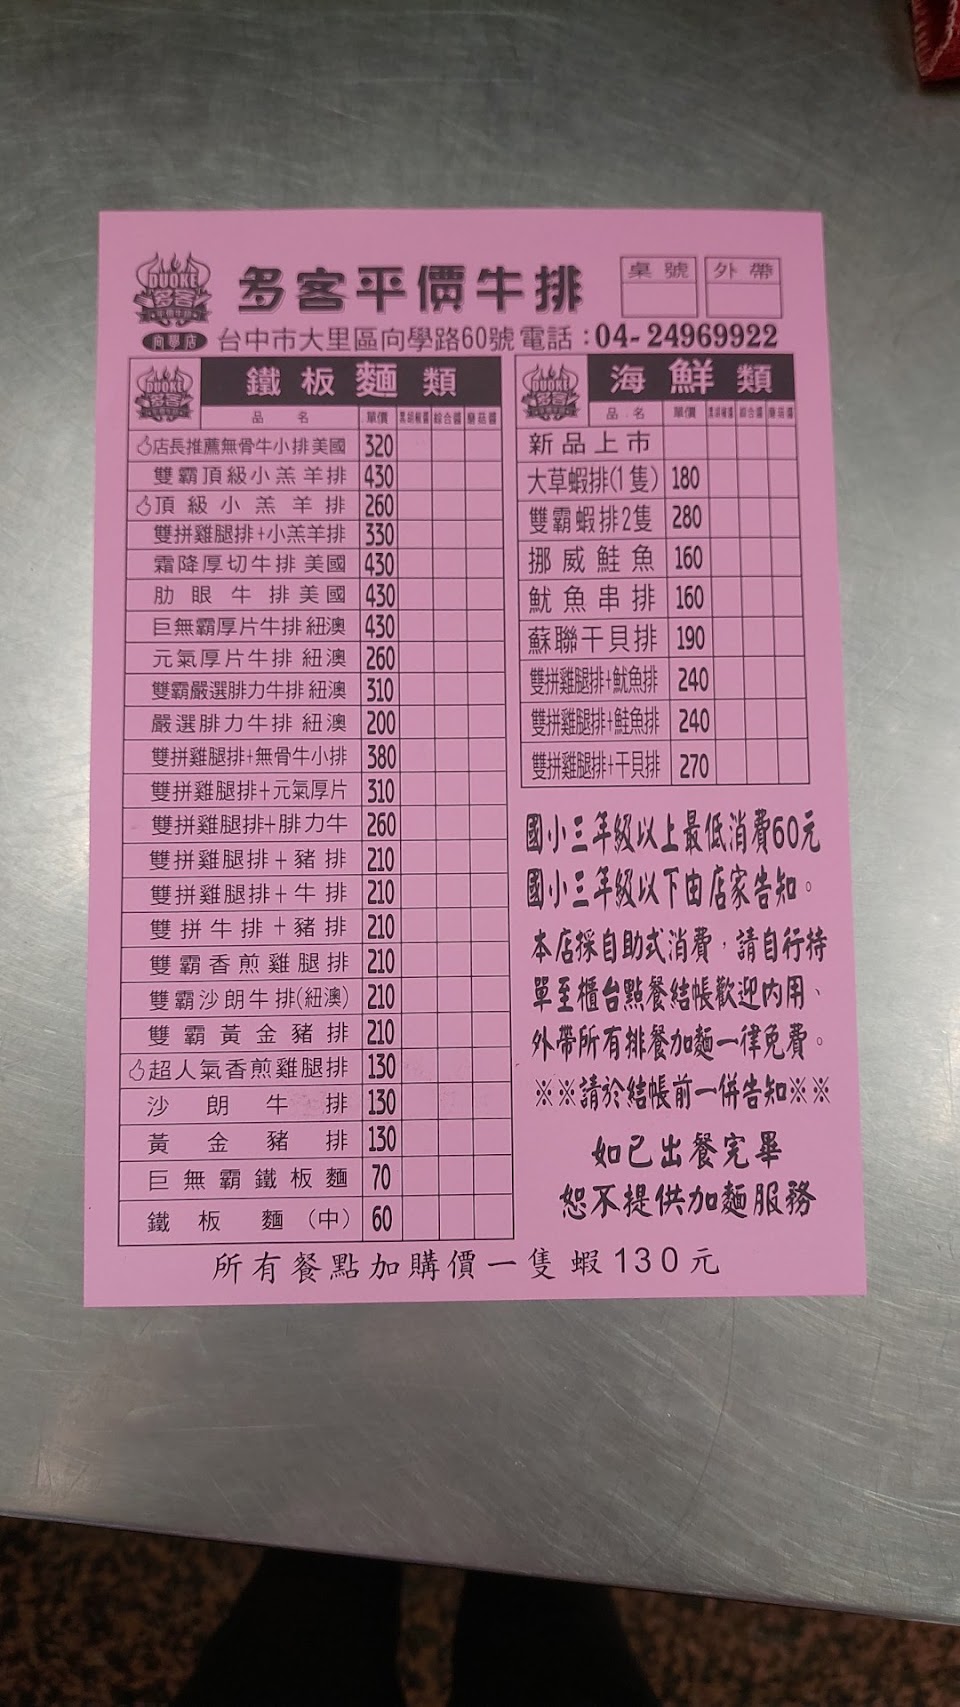 DUOKE
多客
平價牛排
多客平價牛排
桌號
外帶
向學店
台中市大里區向學路60號 電話:04-24969922
DUOKE
多客
鐵板麵類
品名 單價 黑胡椒醬 綜合醬 蘑菇醬
店長推薦無骨牛小排美國 320
雙霸頂級小羔羊排 430
頂級小羔羊排 260
雙拼雞腿排+小羔羊排 330
霜降厚切牛排美國 430
肋眼牛排美國 430
巨無霸厚片牛排紐澳 430
元氣厚片牛排紐澳 260
雙霸嚴選腓力牛排紐澳 310
嚴選腓力牛排紐澳 200
雙拼雞腿排+無骨牛小排 380
雙拼雞腿排+元氣厚片 310
雙拼雞腿排+腓力牛 260
雙拼雞腿排+豬排 210
雙拼雞腿排+牛排 210
雙拼牛排+豬排 210
雙霸香煎雞腿排 210
雙霸沙朗牛排(紐澳) 210
雙霸黃金豬排 210
超人氣香煎雞腿排 130
沙朗牛排 130
黃金豬排 130
巨無霸鐵板麵 70
鐵板麵(中) 60
DUOKE
多客
海鮮類
品名 單價 黑胡椒醬 綜合醬 蘑菇醬
新品上市
大草蝦排(1隻) 180
雙霸蝦排2隻 280
挪威鮭魚 160
魷魚串排 160
蘇聯干貝排 190
雙拼雞腿排+魷魚排 240
雙拼雞腿排+鮭魚排 240
雙拼雞腿排+干貝排 270
國小三年級以上最低消費60元
國小三年級以下由店家告知。
本店採自助式消費,請自行持
單至櫃台點餐結帳歡迎內用、
外帶所有排餐加麵一律免費。
※※請於結帳前一併告知※※
如已出餐完畢
恕不提供加麵服務
所有餐點加購價一隻蝦130元